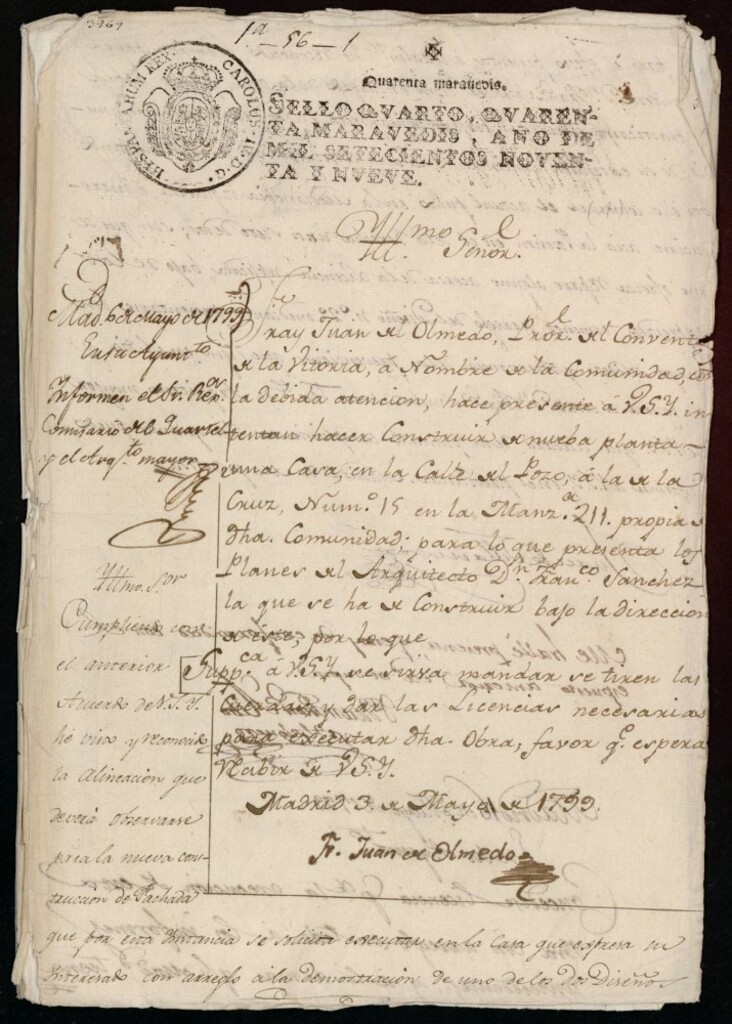 1.ª - 56 - 1
Quarenta maravedis.
SELLO QVARTO, QVAREN-
TA MARAVEDIS, AÑO DE
MIL SETECIENTOS NOVEN-
TA Y NVEVE.
CAROLUS IV. D. G. HISPANIARUM REX.
Yllmo Señor.
Mad. 6 de Mayo de 1799
En su Ayunt.to
Informen el Sr. Reg.or
Comisario del Quartel
y el Arq.to mayor
Fray Juan de Olmedo, Pror. del Convento
de la Vitoria, a Nombre de la Comunidad, con
la debida atencion, hace presente á V.S.Y. in-
tentan hacer Construir de nueba planta
una Casa, en la Calle del Pozo, á la de la
Cruz, Num.o 15 en la Manz.a 211. propia de
dha. Comunidad; para lo que presenta los
Planes del Arquitecto D.n Fran.co Sanchez
la que se ha de Construir bajo la direccion
de este, por lo que
Supp.ca á V.S.Y. se sirva mandar se tiren las
Cuerdas, y dar las Licencias necesarias
para executar dha. Obra, favor q.e espera
recibir de V.S.Y.
Madrid 3 de Mayo de 1799.
Fr. Juan de Olmedo
Yllmo. S.or
Cumpliendo con
el anterior
Acuerdo de V.S.Y.
he visto y reconocido
la alineacion que
deverá observarse
para la nueva cons-
truccion de Fachada
que por esta Instancia se solicita executar en la Casa que expresa su
Interesado con arreglo á la demostracion de uno de los dos Diseños